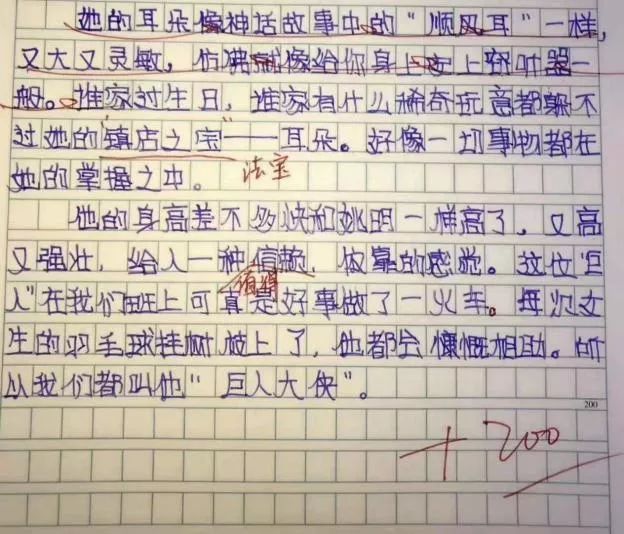 她的耳朵像神话故事中的“顺风耳”一样,
又大又灵敏,仿佛就像给你身上安上窃听器一
般。谁家过生日,谁家有什么稀奇玩意都躲不
过她的“镇店之宝”——耳朵。好像一切事物都在
法宝
她的掌握之中。
他的身高差不多快和姚明一样高了,又高
又强壮,给人一种信赖、依靠的感觉。这位“巨
值得
人”在我们班上可真是好事做了一火车。每次女
生的羽毛球挂树枝上了,他都会慷慨相助。所
以我们都叫他“巨人大侠”。
200
+200